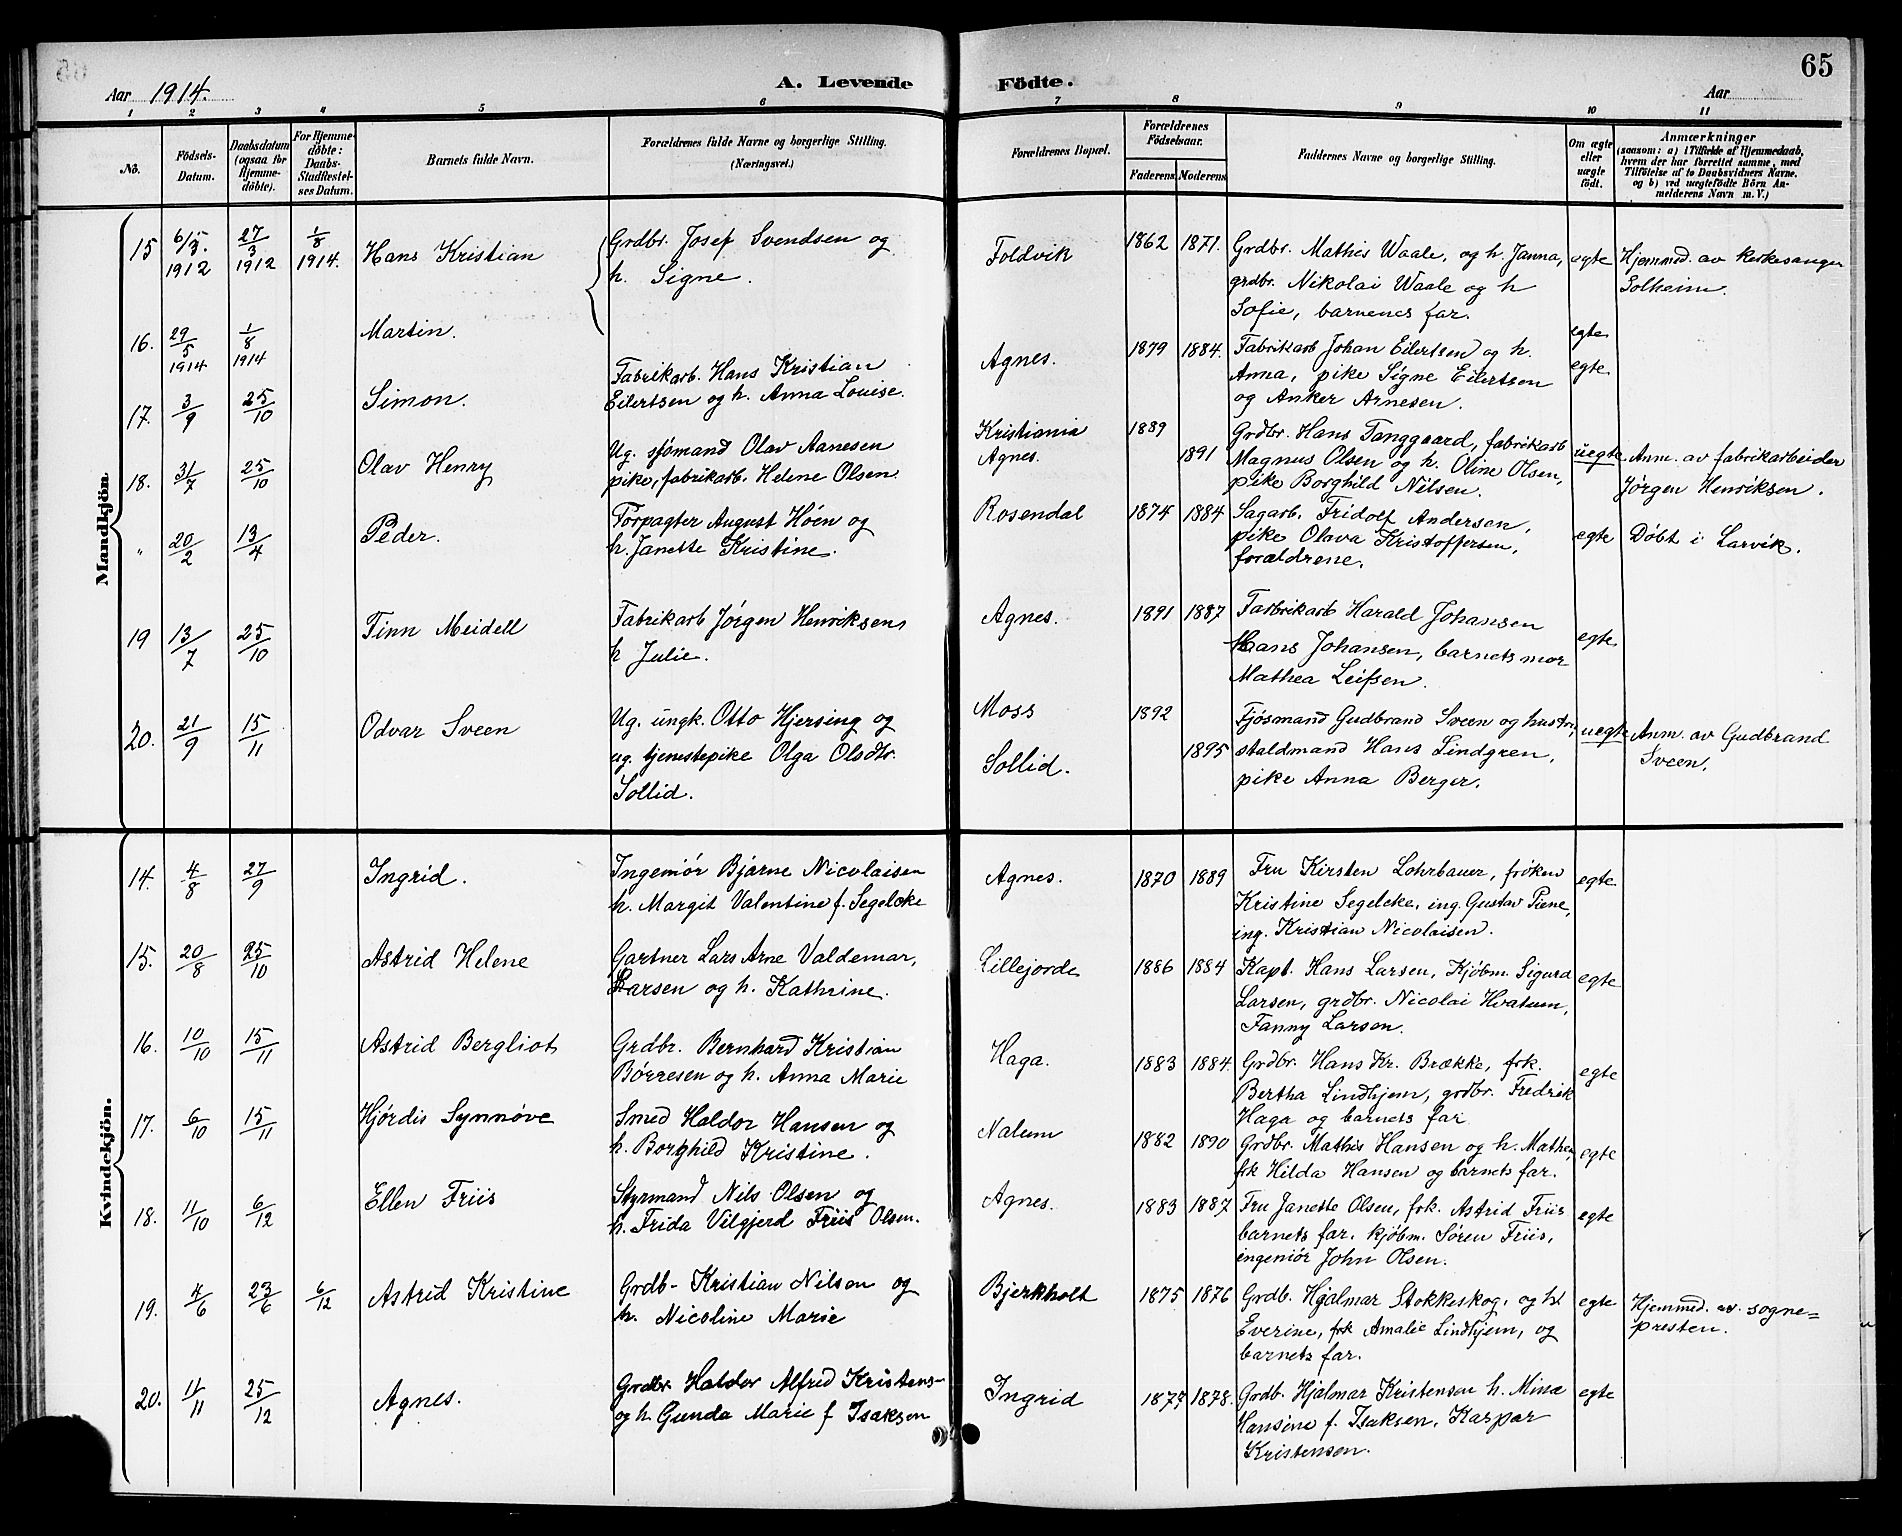 65
Aar 1914.
A. Levende Födte.
Aar
1 2 3 4 5 6 7 8 9 10 11
No.
Födsels-Datum.
Daabsdatum (ogsaa for Hjemme-döbte).
For Hjemme-döbte: Daabs-Stadfæstel-ses Datum.
Barnets fulde Navn.
Forældrenes fulde Navne og borgerlige Stilling. (Næringsvei.)
Forældrenes Bopæl.
Forældrenes Födselsaar.
Faderens Moderens
Faddernes Navne og borgerlige Stilling.
Om ægte eller uægte födt.
Anmærkninger
(saasom: a) i Tilfælde af Hjemmedaab, hvem der har forrettet samme, med Tilföielse af to Daabsvidners Navne, og b) ved uægtefödte Börn An-melderens Navn m. V.)
Mandkjön.
15 6/3. 1912 27/3 1912 1/8 1914. Hans Kristian
Grdbr. Josef Svendsen og
h. Signe.
Foldvik 1862 1871.
Grdbr. Mathis Waale, og h. Janna,
grdbr. Nikolai Waale og h
Sofie, barnenes far.
egte
Hjemmed. av kirkesanger
Solheim.
16. 29/5 1914 1/8 1914 Martin.
egte
17. 3/9 25/10 Simon.
Fabrikarb. Hans Kristian
Eilertsen og h. Anna Louise.
Agnes. 1879 1884.
Fabrikarb Johan Eilertsen og h.
Anna, pike Signe Eilertsen
og Anker Arnesen.
egte
18. 31/7 25/10 Olav Henry
Ug. sjømand Olav Aanesen
pike, fabrikarb. Helene Olsen.
Kristiania 1889
Agnes. 1891
Grdbr. Hans Tanggaard, fabrikarb
Magnus Olsen og h. Oline Olsen,
pike Borghild Nilsen.
uegte
Anm. av fabrikarbeider
Jørgen Henriksen.
" 20/2 13/4 Peder.
Forpagter August Høen og
h. Janette Kristine.
Rosendal 1874 1884
Sagarb. Fridolf Andersen,
pike Olava Kristoffersen,
forældrene.
egte
Døbt i Larvik.
19 13/7 25/10 Finn Meidell
Fabrikarb Jørgen Henriksen,
h Julie.
Agnes. 1891 1887
Fabrikarb Harald Johansen
Hans Johansen, barnets mor
Mathea Leifsen.
egte
20. 21/9 15/11 Odvar Sveen
Ug. ungk. Otto Hjersing og
ug. tjenestepike Olga Olsdtr.
Sollid.
Moss 1892
Sollid. 1895
Fjøsmand Gudbrand Sveen og hustr,
staldmand Hans Lindgren,
pike Anna Berger.
uegte
Anm. av Gudbrand
Sveen.
Kvindekjön.
14. 4/8 27/9 Ingrid.
Ingeniør Bjarne Nicolaisen
h. Margit Valentine f. Segelcke
Agnes. 1870 1889
Fru Kirsten Lohrbauer, frøken
Kristine Segelcke, ing. Gustav Piene,
ing. Kristian Nicolaisen.
egte
15. 20/8 25/10 Astrid Helene
Gartner Lars Arne Valdemar,
Larsen og h. Kathrine.
Lillejorde 1886 1884
Kapt. Hans Larsen, Kjøbm. Sigurd
Larsen, grdbr. Nicolai Hvatum,
Fanny Larsen.
egte
16. 10/10 15/11 Astrid Bergliot
Grdbr. Bernhard Kristian
Børresen og h. Anna Marie
Haga. 1883 1884.
Grdbr. Hans Kr. Brække, frk.
Bertha Lindhjem, grdbr. Fredrik
Haga og barnets far
egte
17. 6/10 15/11 Hjørdis Synnøve
Smed Haldor Hansen og
h. Borghild Kristine.
Nalum 1882 1890
Grdbr. Mathis Hansen og h. Mathea,
frk Hilda Hansen og barnets far.
egte
18. 11/10 6/12 Ellen Friis
Styrmand Nils Olsen og
h. Frida Vilgjerd Friis Olsen.
Agnes. 1883 1887
Fru Janette Olsen, frk. Astrid Friis
barnets far. kjøbm. Søren Friis,
ingeniør John Olsen.
egte
19. 4/6 23/6 6/12 Astrid Kristine
Grdb. Kristian Nilsen og
h. Nicoline Marie
Bjerkholt 1875 1876
Grdb. Hjalmar Stokkeskog, og h.
Everine, frk Amalie Lindhjem, og
barnets far.
egte
Hjemmed. av. sogne=
presten.
20. 11/11 25/12 Agnes.
Grdbr Haldor Alfred Kristens-
og h. Gunda Marie f Isaksen
Ingrid 1877 1878.
Grdb. Hjalmar Kristensen h. Mina
Hansine f. Isaksen, Kaspar
Kristensen.
egte